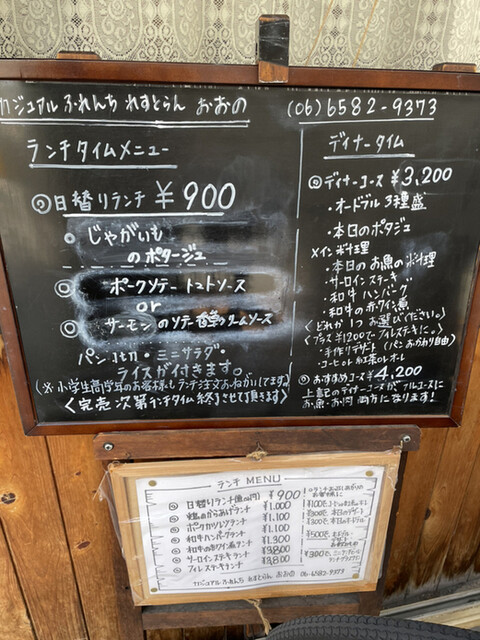 カジュアル ふれんち れすとらん おおの
(06)6582-9373
ランチタイムメニュー
◎日替りランチ ¥900
◎じゃがいも
のポタージュ
◎ポークソテー トマトソース
or
◎サーモンのソテークリームソース
パン1切・ミニサラダ・
ライスが付きます。
(※小学生高学年のお客様もランチ注文おねがいしてます。)
〈完売次第ランチタイム終了させて頂きます〉
ディナータイム
◎ディナーコース ¥3,200
・オードブル3種盛
・本日のポタジュ
メイン料理
・本日のお魚の料理
・サーロインステーキ
・和牛ハンバーグ
・和牛の赤ワイン煮
(どれか1つお選びください。)
(プラス¥1200でフィレステキに。)
・手作りデザート(パンおかわり自由)
・コーヒor紅茶orオレ
◎おすすめコース¥4,200
上記のディナーコースがフルコースに
お魚・お肉 両方になります!
ランチ MENU
◎日替りランチ(魚or肉) ¥900
◎鶏のからあげランチ ¥1,000
◎ポークカツレツランチ ¥1,100
◎和牛ハンバーグランチ ¥1,100
◎和牛の赤ワイン煮ランチ ¥1,300
◎サーロインステーキランチ
◎フィレステーキランチ ¥3,800
カジュアル ふれんち れすとらん おおの 06-6582-9373